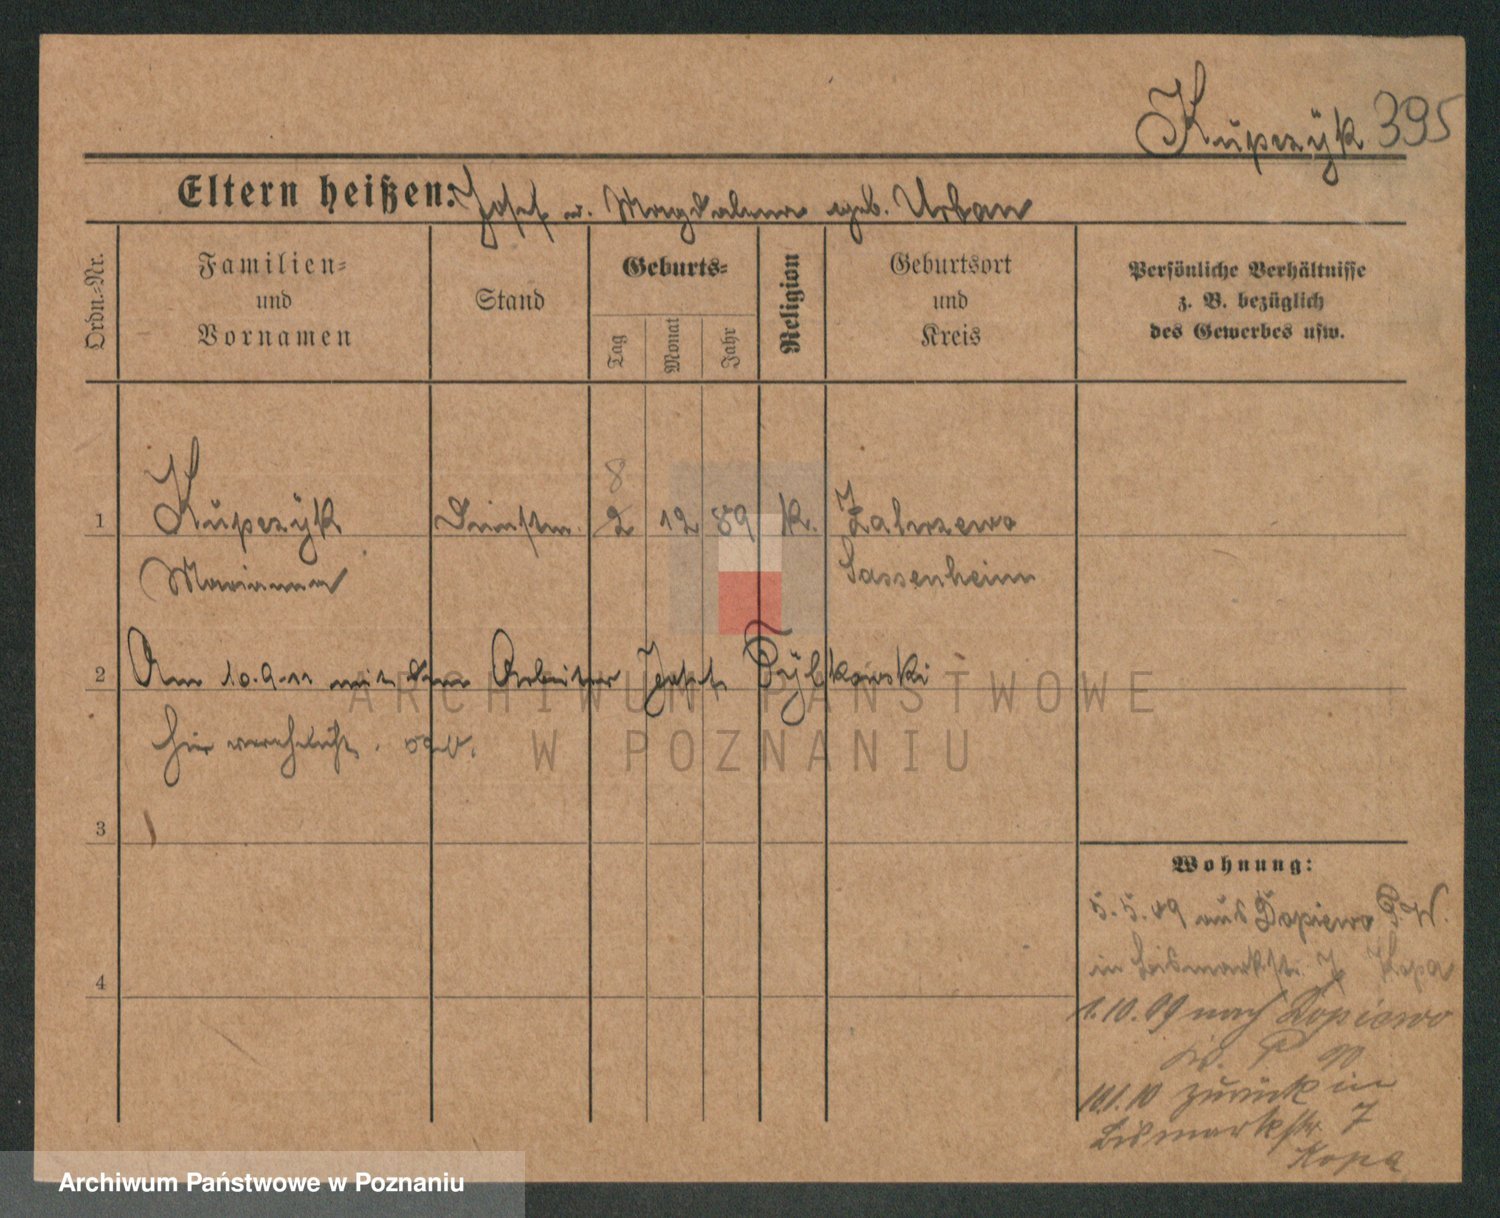 Kupczÿk 395
Eltern heißen: Josef u. Magdalena geb. Urban
Ordn.-Nr.
Familien-
und
Vornamen
Stand
Geburts-
Tag
Monat
Jahr
Religion
Geburtsort
und
Kreis
Persönliche Verhältnisse
z. B. bezüglich
des Gewerbes usw.
8
1 Kupczÿk Dienstm. 2 12 89 k. Zakrzewo
Marianna Sassenheim
2 Am 10.9.11 mit dem Arbeiter Josef Dÿbkowski
hier verehelicht.
3
Wohnung:
5.5.09 aus Dopiewo P.W.
in Bismarckstr. 7 Kopa
4
1.10.09 nach Dopiewo
Kr. P W
10.1.10 zurück in
Bismarckstr. 7
Kopa
ARCHIWUM PAŃSTWOWE
W POZNANIU
Archiwum Państwowe w Poznaniu